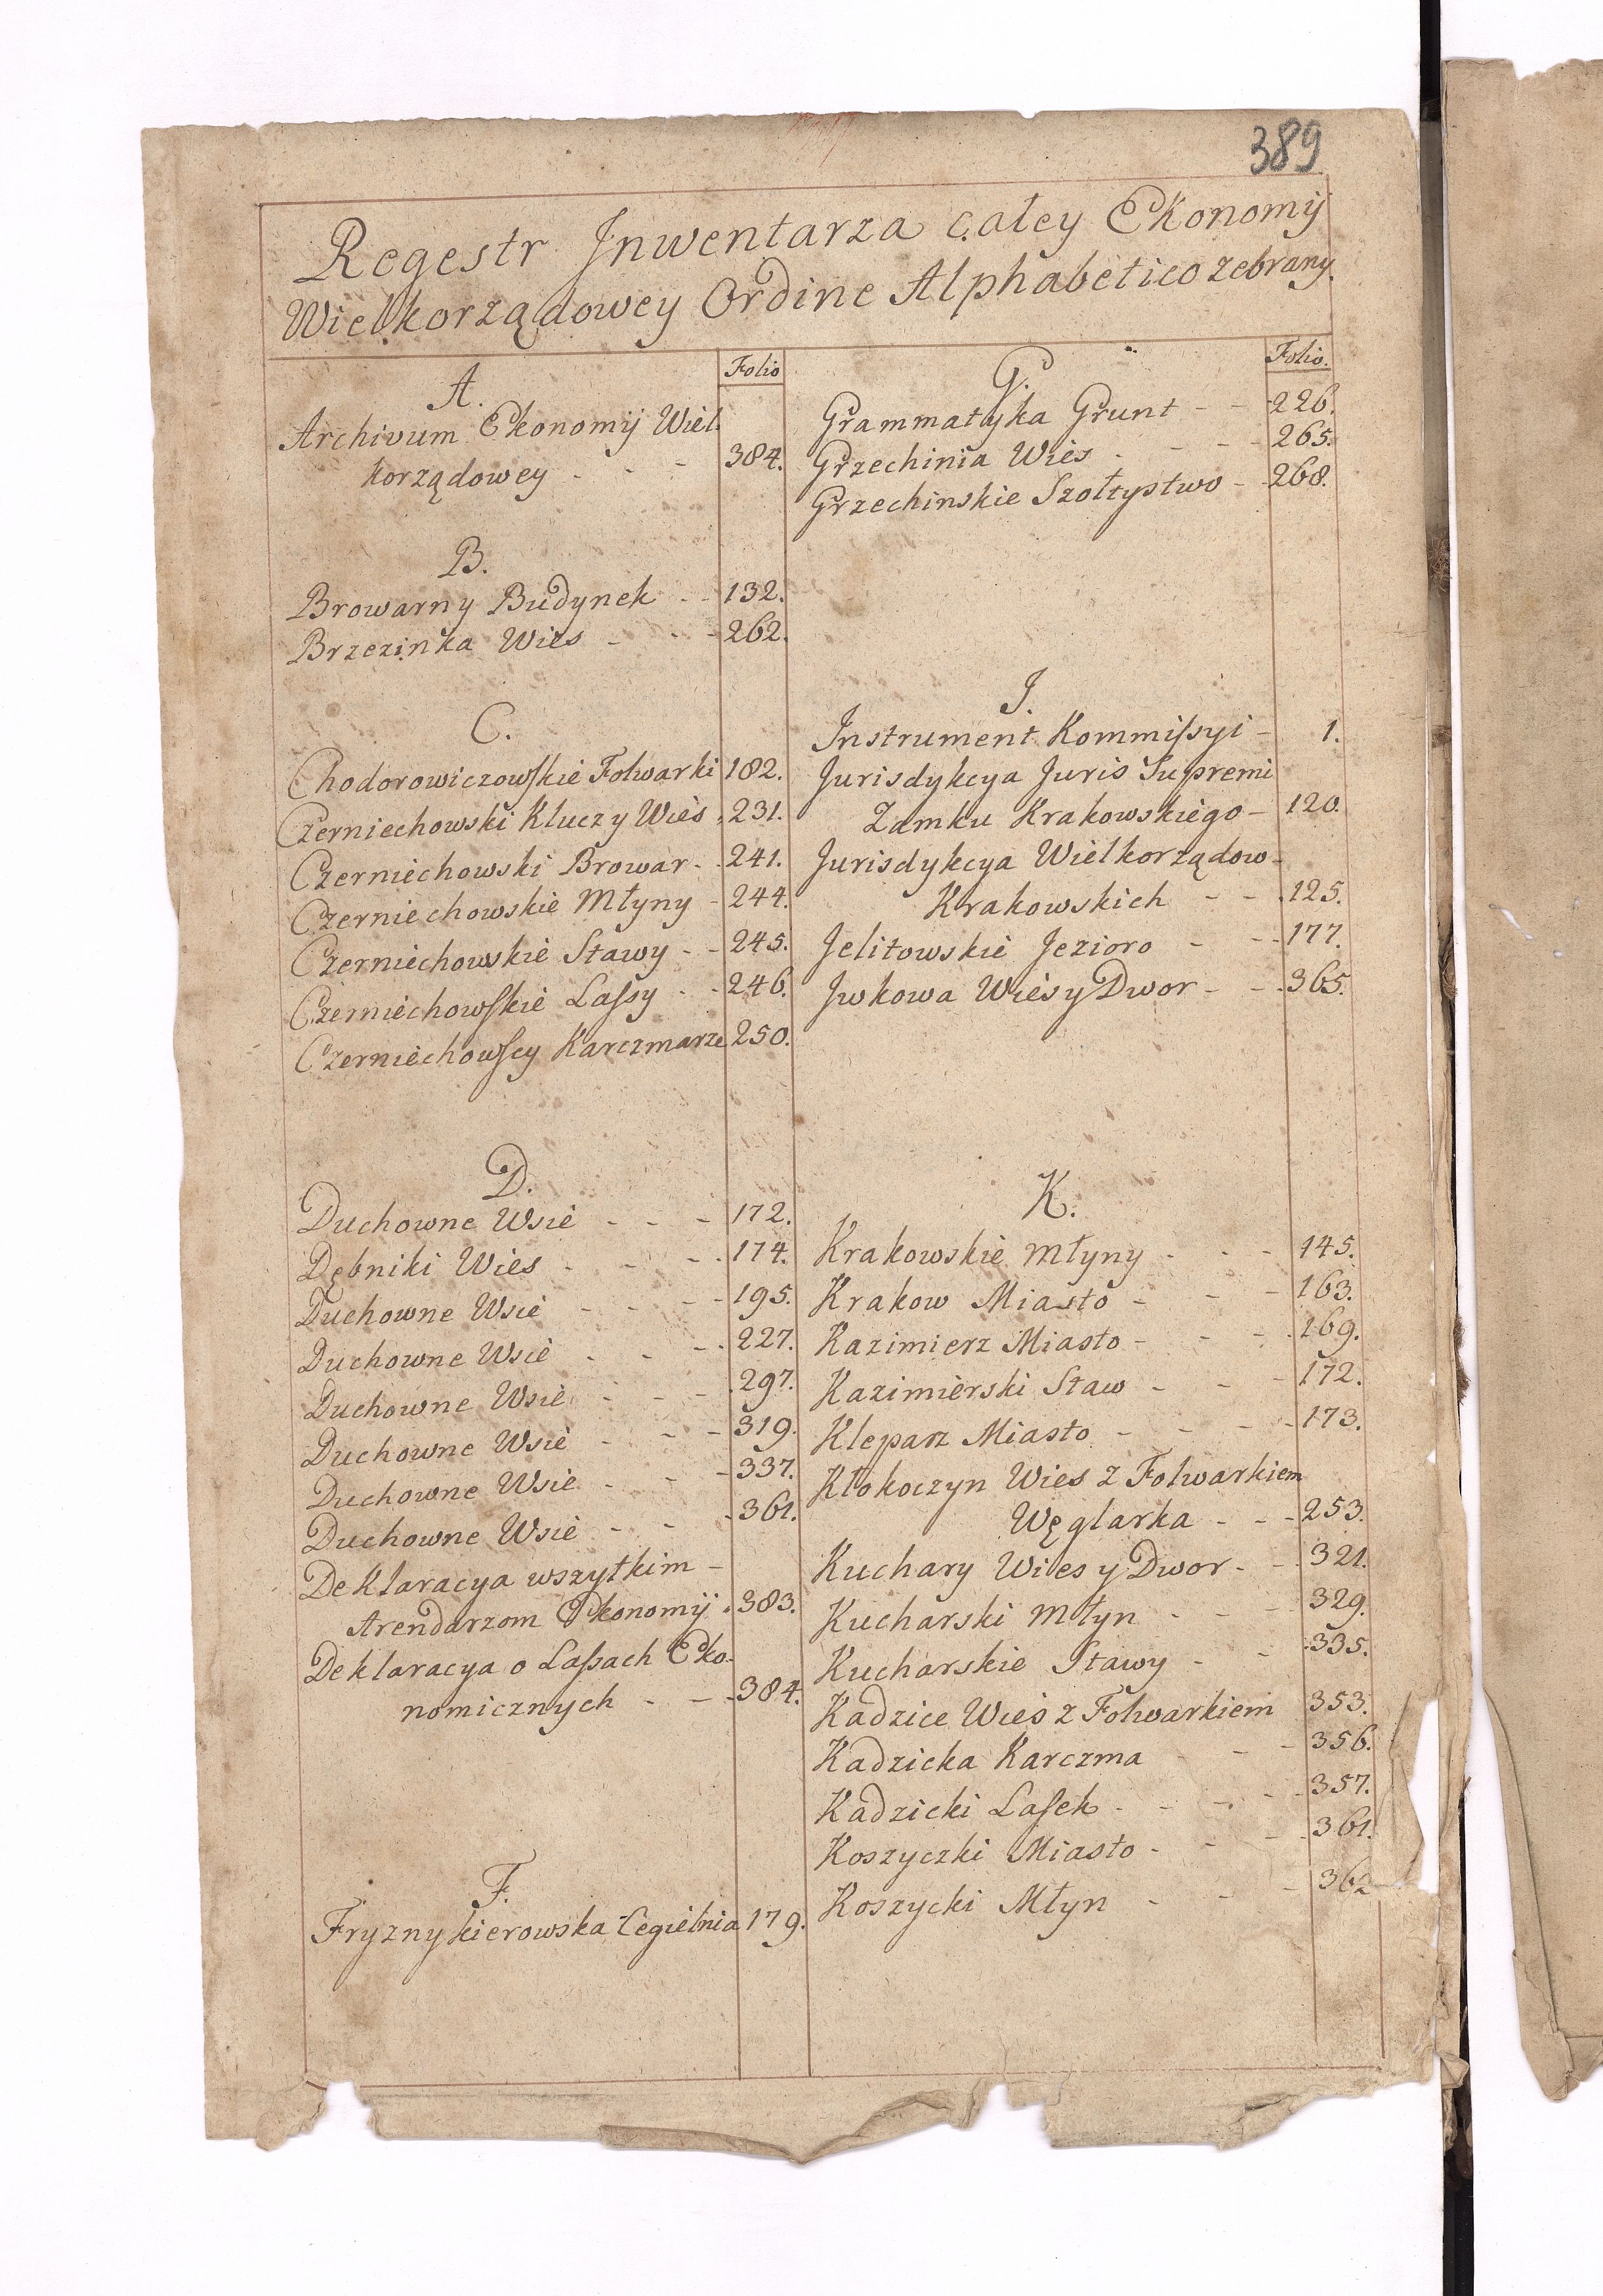 389
Regestr Jnwentarza całey Ekonomij
Wielkorządowey Ordine Alphabetico zebrany.
Folio
A.
Archivum Ekonomij Wiel.
korządowey - - - 384.
B.
Browarny Budynek - - 132.
Brzezinka Wies - - - 262.
C.
Chodorowiczowskie Folwarki 182.
Czerniechowski Klucz y Wieś 231.
Czerniechowski Browar - - 241.
Czerniechowskie Młyny - 244.
Czerniechowskie Stawy - - 245.
Czerniechowskie Lassy - - 246.
Czerniechowscy Karczmarze 250.
D.
Duchowne Wsie - - - 172.
Dębniki Wies - - - 174.
Duchowne Wsie - - - 195.
Duchowne Wsie - - - 227.
Duchowne Wsie - - - 297.
Duchowne Wsie - - - 319.
Duchowne Wsie - - - 337.
Duchowne Wsie - - - 361.
Deklaracya wszytkim -
Arendarzom Ekonomij 383.
Deklaracya o Lassach Eko-
nomicznych - - - 384.
F.
Fryznykierowska Cegielnia 179.
Folio.
G.
Grammatyka Grunt - - 226.
Grzechinia Wies - - - 265.
Grzechinskie Szołtystwo - 268.
J.
Jnstrument Kommissyi - 1.
Jurisdykcya Juris Supremi
Zamku Krakowskiego - 120.
Jurisdykcya Wielkorządow -
Krakowskich - - 125.
Jelitowskie Jezioro - - 177.
Jwkowa Wieś y Dwor - - 365.
K.
Krakowskie Młyny - - - 145.
Krakow Miasto - - - 163.
Kazimierz Miasto - - - 169.
Kazimierski Staw - - - 172.
Kleparz Miasto - - - - 173.
Kłokoczyn Wies z Folwarkiem
Węglarka - - - 253.
Kuchary Wies y Dwor - - 321.
Kucharski Młyn - - - 329.
Kucharskie Stawy - - 335.
Kadzice Wieś z Folwarkiem 353.
Kadzicka Karczma - - - 356.
Kadzicki Lasek - - - - 357.
Koszyczki Miasto - - - 361.
Koszycki Młyn - - - 362